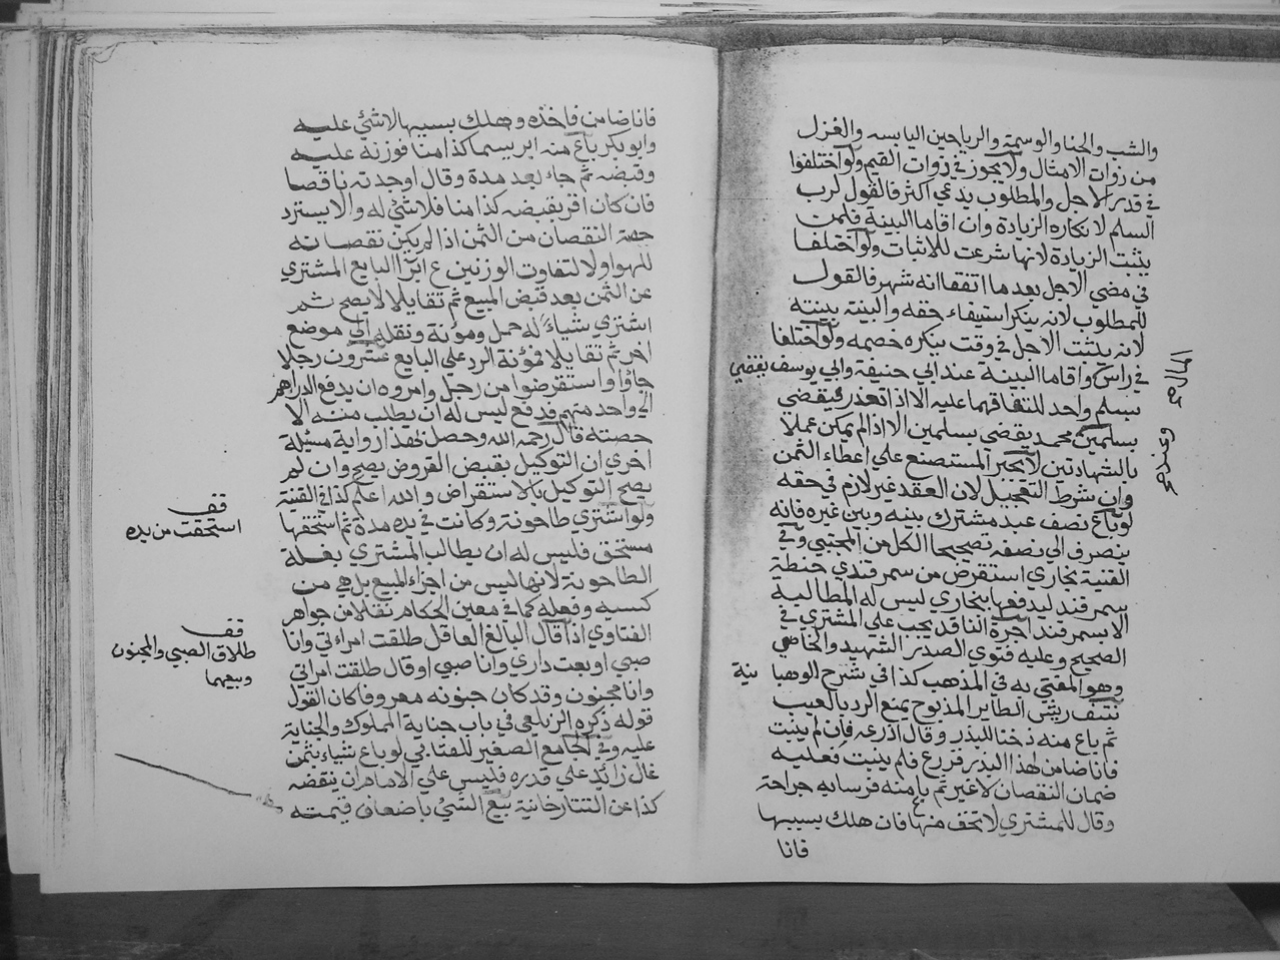 والشب والحنا والوسمة والرياحين اليابسه والغزل
من زوات الامثال ولايجوز في زوات القيم ولواختلفوا
في قدر الاجل والمطلوب يدعي اكثر فالقول لرب
السلم لانكاره الزيادة وان اقاما البينة فلمن
يثبت الزيادة لانها شرعت للاثبات ولواختلفا
في مضي الاجل بعد ما اتفقا انه شهر فالقول
للمطلوب لانه ينكر استيفاء حقه والبينة بينته
لانه يثبت الاجل في وقت ينكره خصمه ولواختلفا
في راس واقاما البينة عند ابي حنيفة وابي يوسف يقضي
بسلم واحد لاتفاقهما عليه الا اذا تعذر فيقضي
بسلمين محمد يقضي بسلمين الا اذا لم يمكن عملا
بالشهادتين لايجبر المستصنع علي اعطاء الثمن
وان شرط التعجيل لان العقد غير لازم في حقه
لوباع نصف عبد مشترك بينه وبين غيره فانه
ينصرف الي نصفه تصحيحا الكل من المجتبي وفي
القنية بخاري استقرض من سمرقندي حنطة
بسمرقند ليدفعها ببخاري ليس له المطالبة
الا بسمرقند اجرة الناقد يجب علي المشتري في
الصحيح وعليه فتوي الصدر الشهيد والخاصي
وهو المفتي به في المذهب كذا في شرح الوهبا نية
نتف ريش الطاير المذبوح يمنع الرد بالعيب
ثم باع منه ذخنا للبذر وقال ازرعه فان لم ينبت
فانا ضامن لهذا البذر فزرع فلم ينبت فعليه
ضمان النقصان لاغير ثم باع منه فرسا به جراحة
وقال للمشتري لا تخف منها فان هلك بسببها
فانا
المال صح
وعند صح
فانا ضامن فاخذه وهلك بسببها لاشئ عليه
وابو بكر باع منه ابريسما كذا منا فوزنه عليه
وقبضه ثم جاء بعد مدة وقال اوجدته ناقصا
فان كان اقر بقبضه كذا منا فلاشئ له والا يسترد
حصة النقصان من الثمن اذا لم يكن نقصانه
للهوا ولا لتفاوت الوزنين ع ابرا البايع المشتري
عن الثمن بعد قبض المبيع ثم تقايلا لا يصح شم
اشتري شياء له حمل ومؤنة ونقله الي موضع
اخر ثم تقايلا فمؤنة الرد علي البايع عشرون رجلا
جاؤا واستقرضوا من رجل وامروه ان يدفع الدراهم
الي واحد منهم فدفع ليس له ان يطلب منه الا
حصته قال رحمه الله وحصل بهذا رواية مسئلة
اخري ان التوكيل بقبض القروض يصح وان لم
يصح التوكيل بالاستقراض والله اعلم كذا في القنية
ولو اشتري طاحونة وكانت في يده مدة ثم استحقها
مستحق فليس له ان يطالب المشتري بغلة
الطاحونة لانها ليس من اجزاء المبيع بل هي من
كسبه وفعله كما في معين الحكام نقلا من جواهر
الفتاوي اذا قال البالغ العاقل طلقت امراتي وانا
صبي او بعت داري وانا صبي او قال طلقت امراتي
وانا مجنون وقد كان جنونه معروفا كان القول
قوله ذكره الزيلعي في باب جناية المملوك والجناية
عليه وفي الجامع الصغير للعتابي لو باع شياء بثمن
غال زائد علي قدره فليس علي الامام ان ينقضه
كذا عن التتارخانية بيع الشئ باضعاف قيمته
قف
استحقت من يده
قف
طلاق الصبي والمجنون
وبيعهما